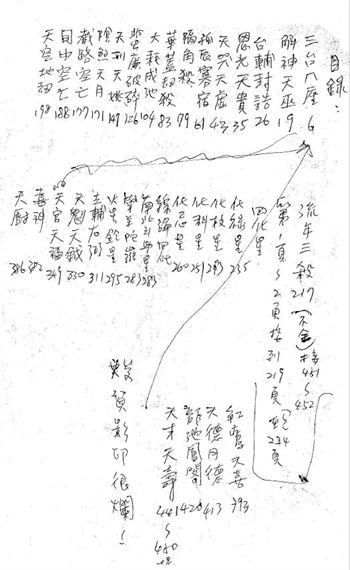 目錄:
三台八座 6
解神天巫 19
台輔封誥 26
恩光天貴 35
天哭天虛 42
孤辰寡宿 61
隔角殺 79
華蓋劫殺 83
大耗咸池 104
蜚廉破碎 126
天刑天姚 149
陰煞天月 171
截路空亡 177
旬中空亡 188
天空地劫 198
流年三殺 217 (不全) 接 451~452
第1頁~2頁接到219頁~234頁
四化星
化祿星 235
化權星 243
化科星 251
化忌星 260
綜論四化
南北斗助星 283
擎羊陀羅 283
火星鈴星 295
左輔右弼 311
天魁天鉞 330
天官天福 349
喜神 382
天廚 386
紅鸞天喜 393
天德月德 413
龍池鳳閣 428
天才天壽 441~450
幾頁影印很爛!